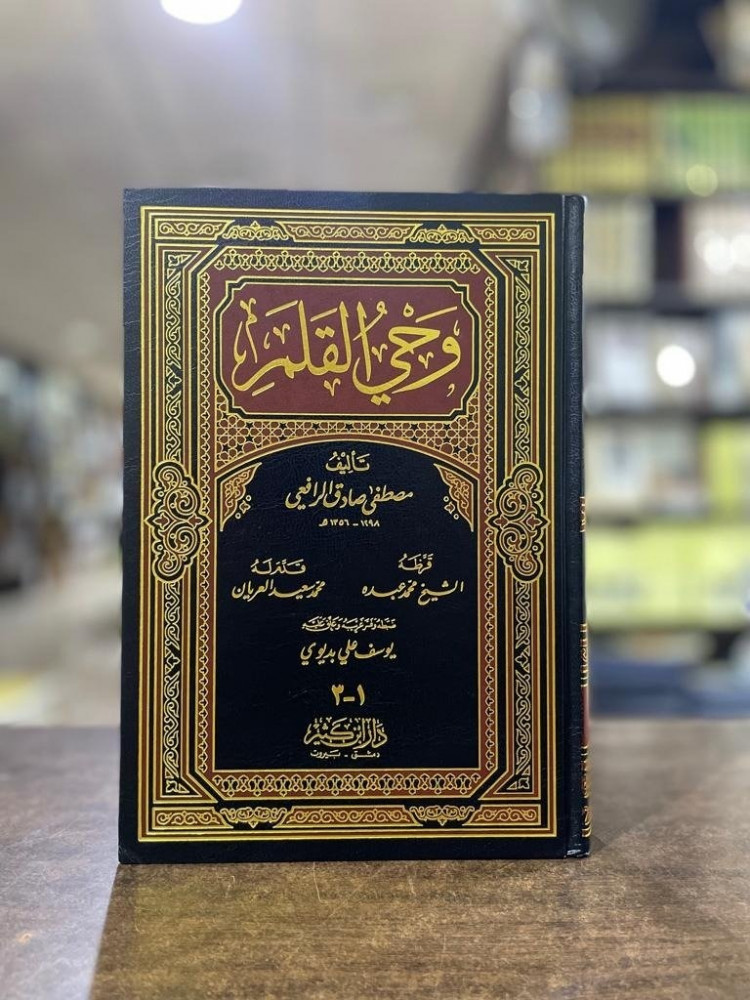 وَحْيُ القَلَمِ
تَأليفُ
مصطفى صادق الرافعي
١٢٩٨ - ١٣٥٦ هـ
قَرَّظَهُ
الشيخ محمد عبده
قَدَّمَ لَهُ
محمد سعيد العريان
ضبطه وشرح غريبه وعلق عليه
يوسف علي بديوي
١-٣
دار ابن كثير
دمشق - بيروت